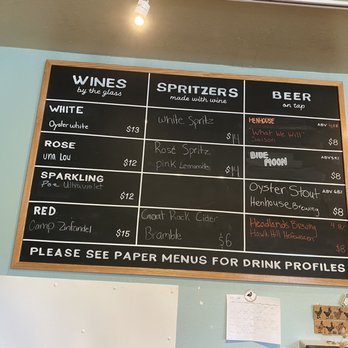 WINES
by the glass
WHITE
Oyster white $13
ROSE
una Lou $12
SPARKLING
Poe Ultraviolet $12
RED
Camp Zinfandel $15
SPRITZERS
made with wine
White Spritz $14
Rosé Spritz
pink Lemonade $14
Goat Rock Cider
Bramble $6
BEER
on tap
HENHOUSE ABV
"What We Will"
Saison $8
BLUE MOON ABV $8
Oyster Stout ABV
Henhouse Brewing $8
Headlands Brewing
Hawk Hill $8
PLEASE SEE PAPER MENUS FOR DRINK PROFILES